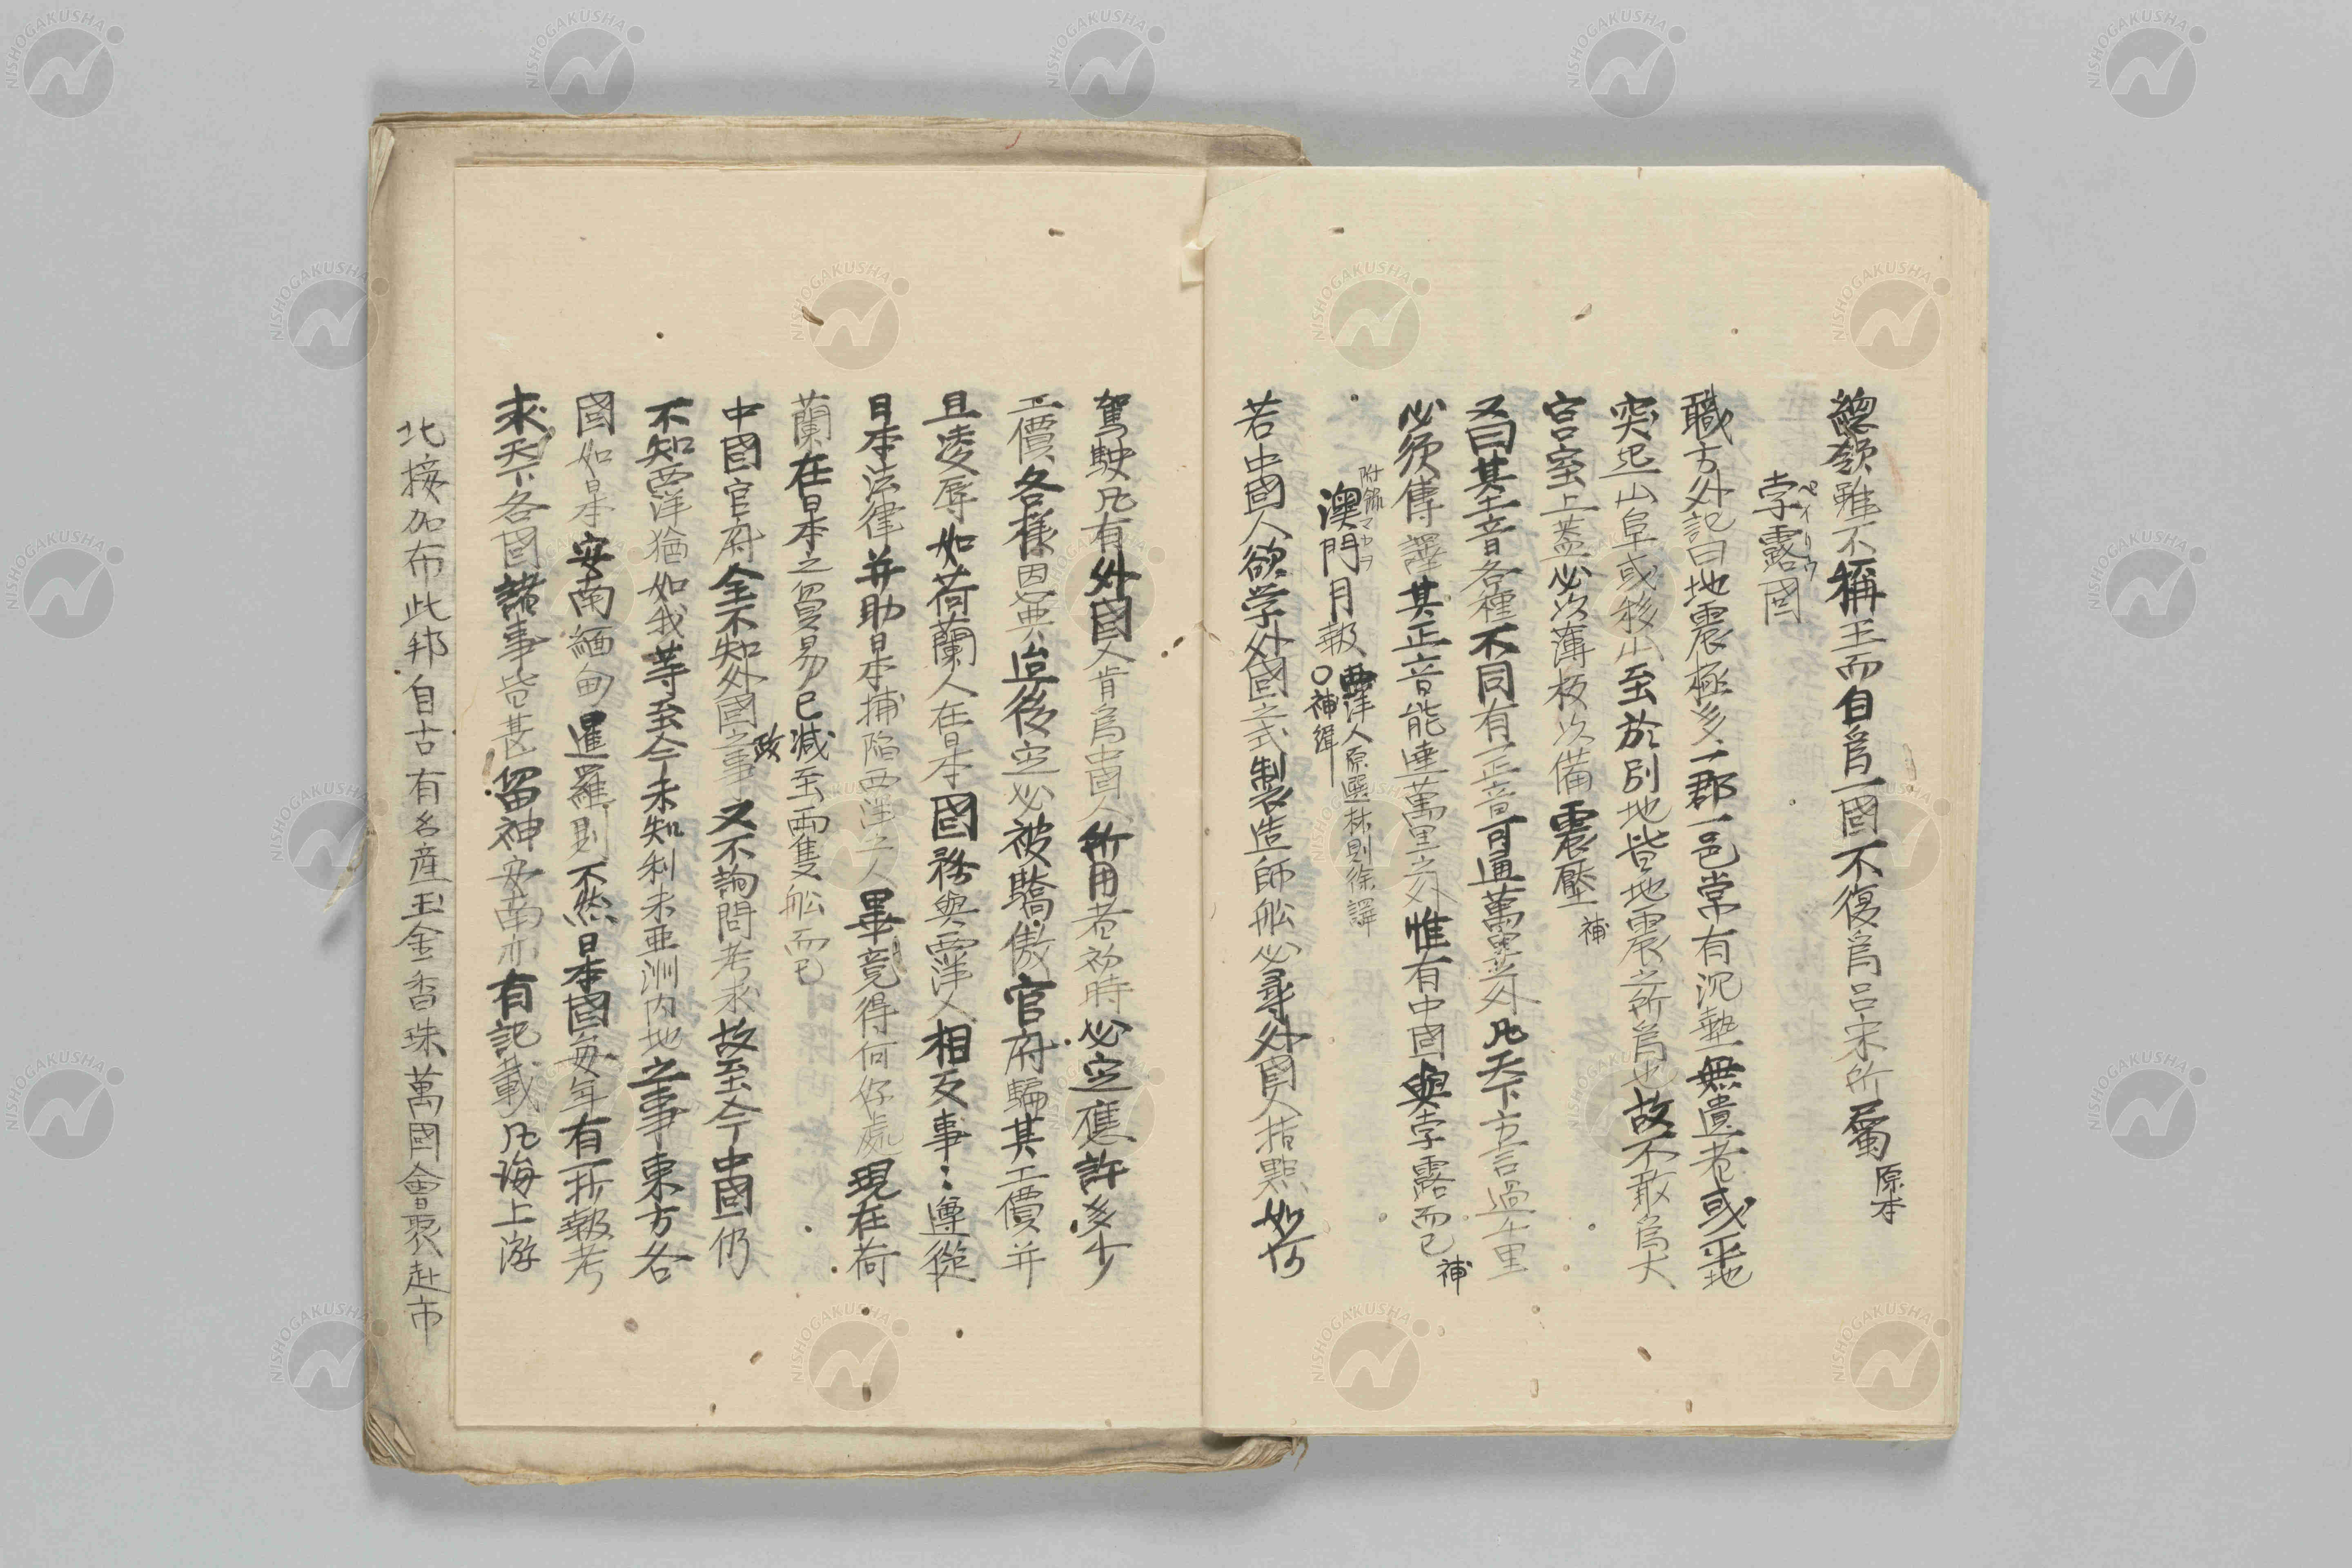 總領雖不稱王而自爲一國不復爲呂宋所屬 原本
孛露國 ペイリウ
職方外記曰地震極多一郡一邑常有沉墊無遺者或平地
突起山阜或移山至於別地皆地震之所爲也故不敢爲大
宮室上蓋必以薄板以備震壓 補
又曰其土音各種不同有一正音可通萬里之外凡天下方言過千里
必須傳譯其正音能達萬里之外惟有中國與孛露而已 補
附錄マカヲ
澳門月報 西洋人原選林則徐譯
〇神緝
若中國人欲学外國之式製造師船必尋外國人指點如何
駕駛凡有外國人肯爲中國人所用者初時必定應許多少
工價各樣恩典迨後定必被驕傲官府騙其工價并
且凌辱如荷蘭人在日本國務與西洋人相反事〻遵從
日本法律并助日本捕陷西洋之人畢竟得何好處現在荷
蘭在日本之貿易已減至兩隻船而已
中國官府全不知外國之事政又不詢問考求故至今中國仍
不知西洋猶如我等至今未知利未亜洲内地之事東方各
國如日本安南緬甸暹羅則不然日本國每年有一抄報考
求天下各國諸事皆甚留神安南亦有記載凡海上游
北接加布此邦自古有名産玉金香珠萬國會聚赴市